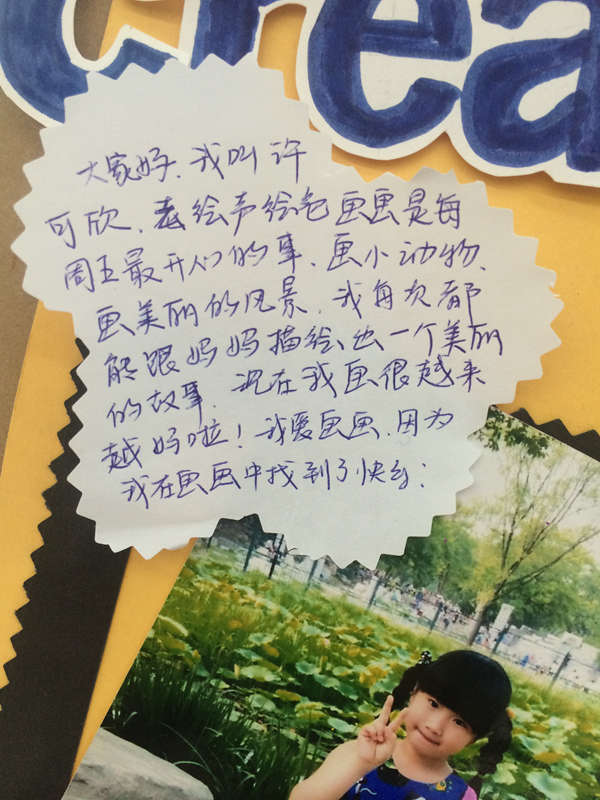 Crea
大家好、我叫许
可欣、去绘声绘色画画是每
周五最开心的事、画小动物、
画美丽的风景、我每次都
能跟妈妈描绘出一个美丽
的故事、现在我画很越来
越好啦！我爱画画、因为
我在画画中找到了快乐；